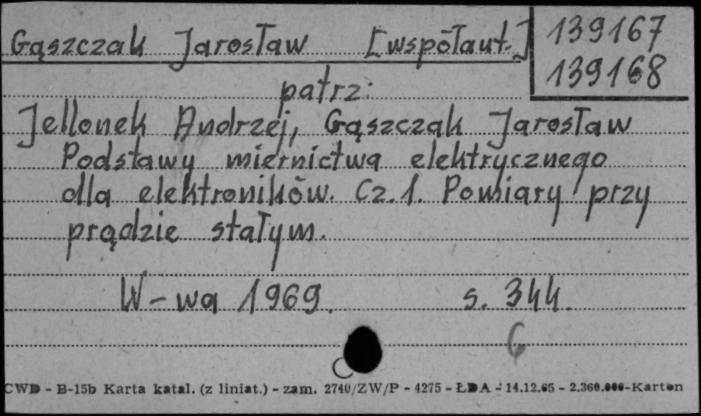 Gąszczak Jarosław [współaut.]
139167
139168
patrz:
Jellonek Andrzej, Gąszczak Jarosław
Podstawy miernictwa elektrycznego
dla elektroników. Cz. 1. Pomiary przy
prądzie stałym.
W-wa 1969. s. 344.
6
CWD - B-15b Karta katal. (z liniat.) - zam. 2740/ZW/P - 4275 - ŁDA - 14.12.65 - 2.360.000-Karton